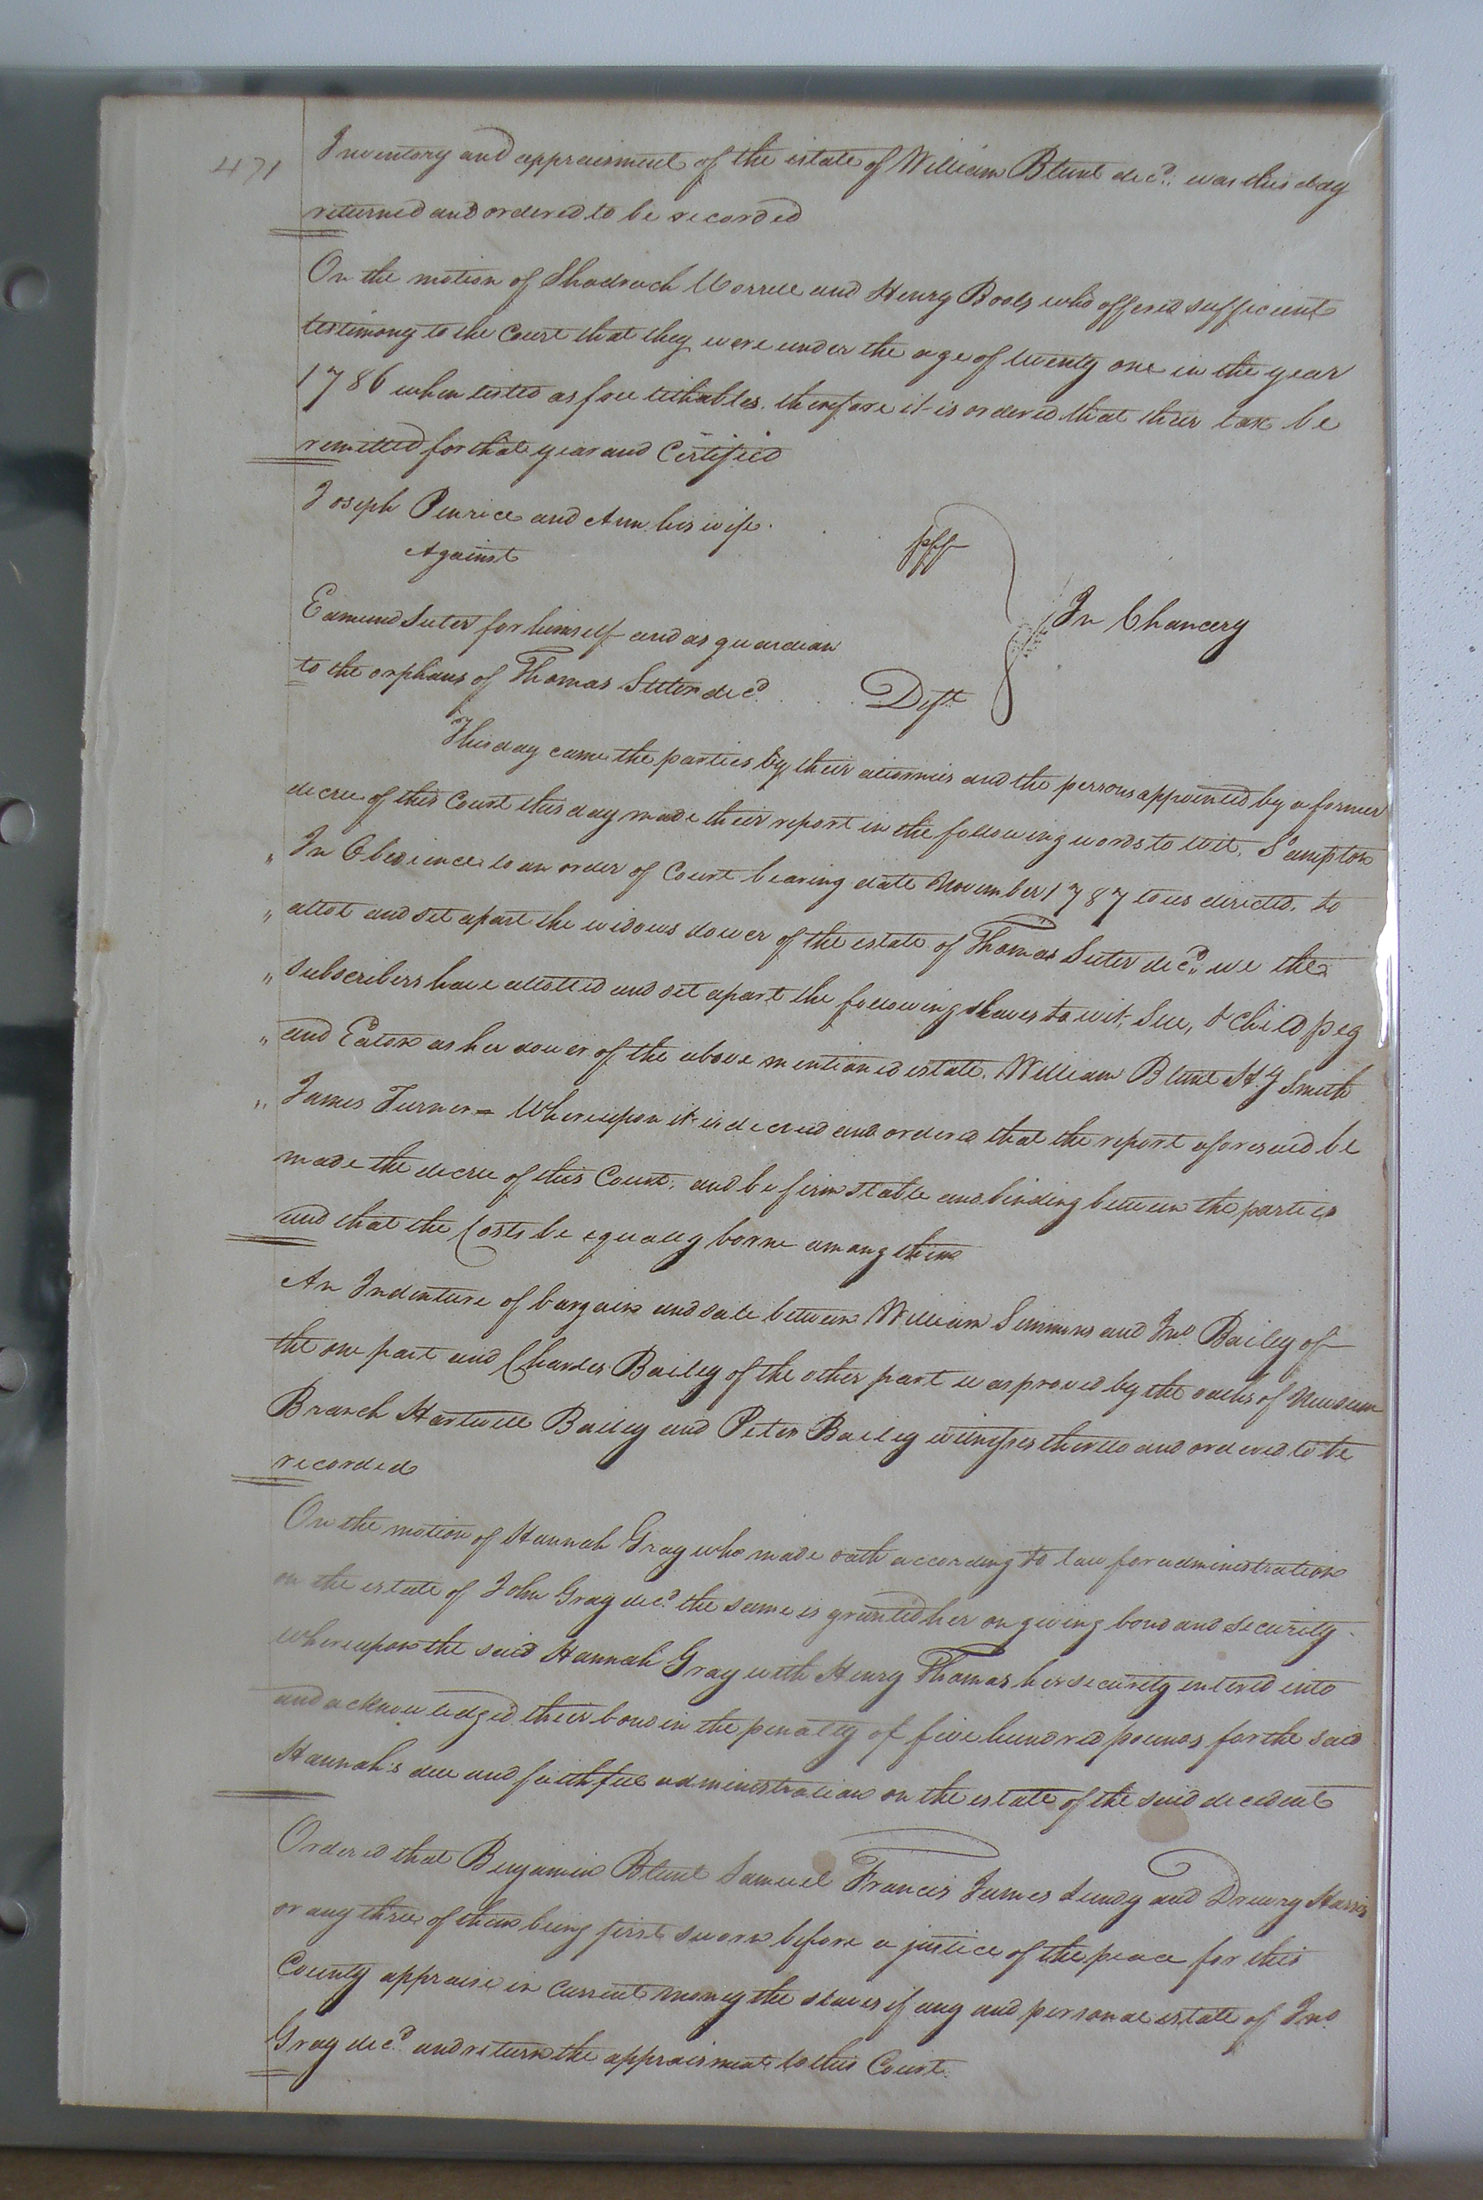 471
Inventory and appraisment of the estate of William Blunt decd. was this day
returned and ordered to be recorded
On the motion of Shadrach Worrell and Henry Booth who offered sufficient
testimony to the Court that they were under the age of twenty one in the year
1786 when listed as free tithables. therefore it is ordered that their tax be
remitted for that year and Certified
Joseph Penrice and Ann his wife
plff
Against
In Chancery
Edmund Suter for himself and as guardian
to the orphans of Thomas Suter decd. Deft.
This day came the parties by their attornies and the persons appointed by a former
decree of this Court this day made their report in the following words to wit, Sampton
" In Obedience to an order of Court bearing date November 1787 to us directed, to
" allot and set apart the widows dower of the estate of Thomas Suter decd. we the
" subscribers have allotted and set apart the following slaves to wit, Sue, & child peg
" and Eaton as her dower of the above mentioned estate. William Blunt H. J Smith
" James Turner = Whereupon it is decreed and ordered that the report aforesaid be
made the decree of this Court, and be firm stable and binding between the parties
and that the Costs be equally borne among them
An Indenture of bargain and sale between William Simmons and Jno. Bailey of
the one part and Charles Bailey of the other part was proved by the oaths of Newsum
Branch Hartwell Bailey and Peter Bailey witnesses thereto and ordered to be
recorded
On the motion of Hannah Gray who made oath according to law for administration
on the estate of John Gray decd. the same is granted her on giving bond and security
whereupon the said Hannah Gray with Henry Thomas her security entered into
and acknowledged their bond in the penalty of five hundred pounds for the said
Hannah's due and faithful administration on the estate of the said decedent
Ordered that Benjamin Blunt Samuel Francis James Lundy and Drewry Harris
or any three of them being first sworn before a justice of the peace for this
County appraise in current money the slaves if any and personal estate of Jno.
Gray decd. and return the appraisment to this Court